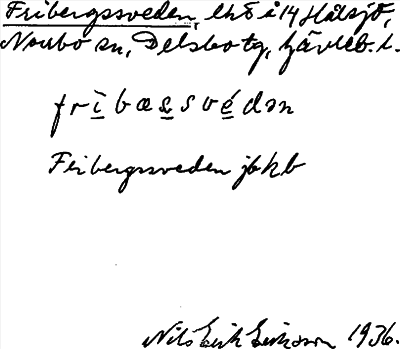 Fribergssveden, lht å 14 Hålsjö,
Norrbo sn, Delsbo tg, Gävleb. l.
frìbæssvédən
Fribergssveden jbkb
Nils Erik Eriksson 1936.